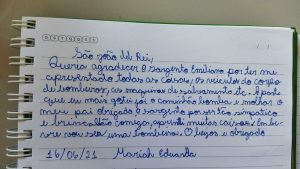 OUTUBRO
São João del Rei,
Queria agradecer o sargento Emiliano por ter me
apresentado todas as coisas, os veículos do corpo
de bombeiros, as máquinas de salvamento etc. A parte
que eu mais gostei foi o caminhão bomba e molhar o
meu pai obrigado sargento por ser tão simpático
e brincalhão comigo, aprendi muitas coisas. Em bre-
ve vou ser uma bombeira. beijos e obrigado
16/06/21 Mariah Eduarda